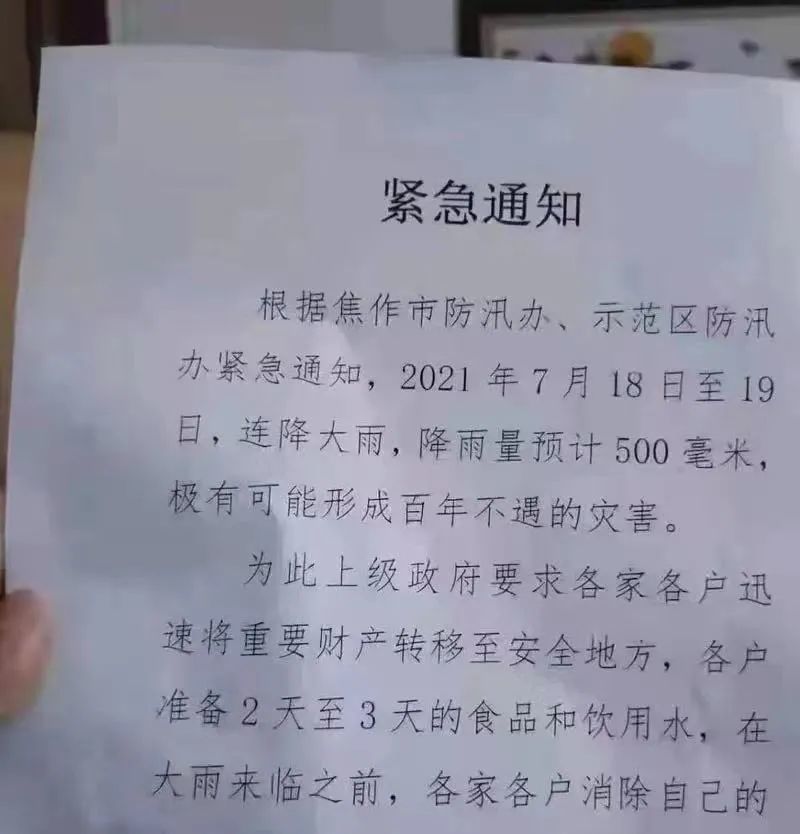 紧急通知
根据焦作市防汛办、示范区防汛
办紧急通知，2021 年 7 月 18 日至 19
日，连降大雨，降雨量预计 500 毫米，
极有可能形成百年不遇的灾害。
为此上级政府要求各家各户迅
速将重要财产转移至安全地方，各户
准备 2 天至 3 天的食品和饮用水，在
大雨来临之前，各家各户消除自己的